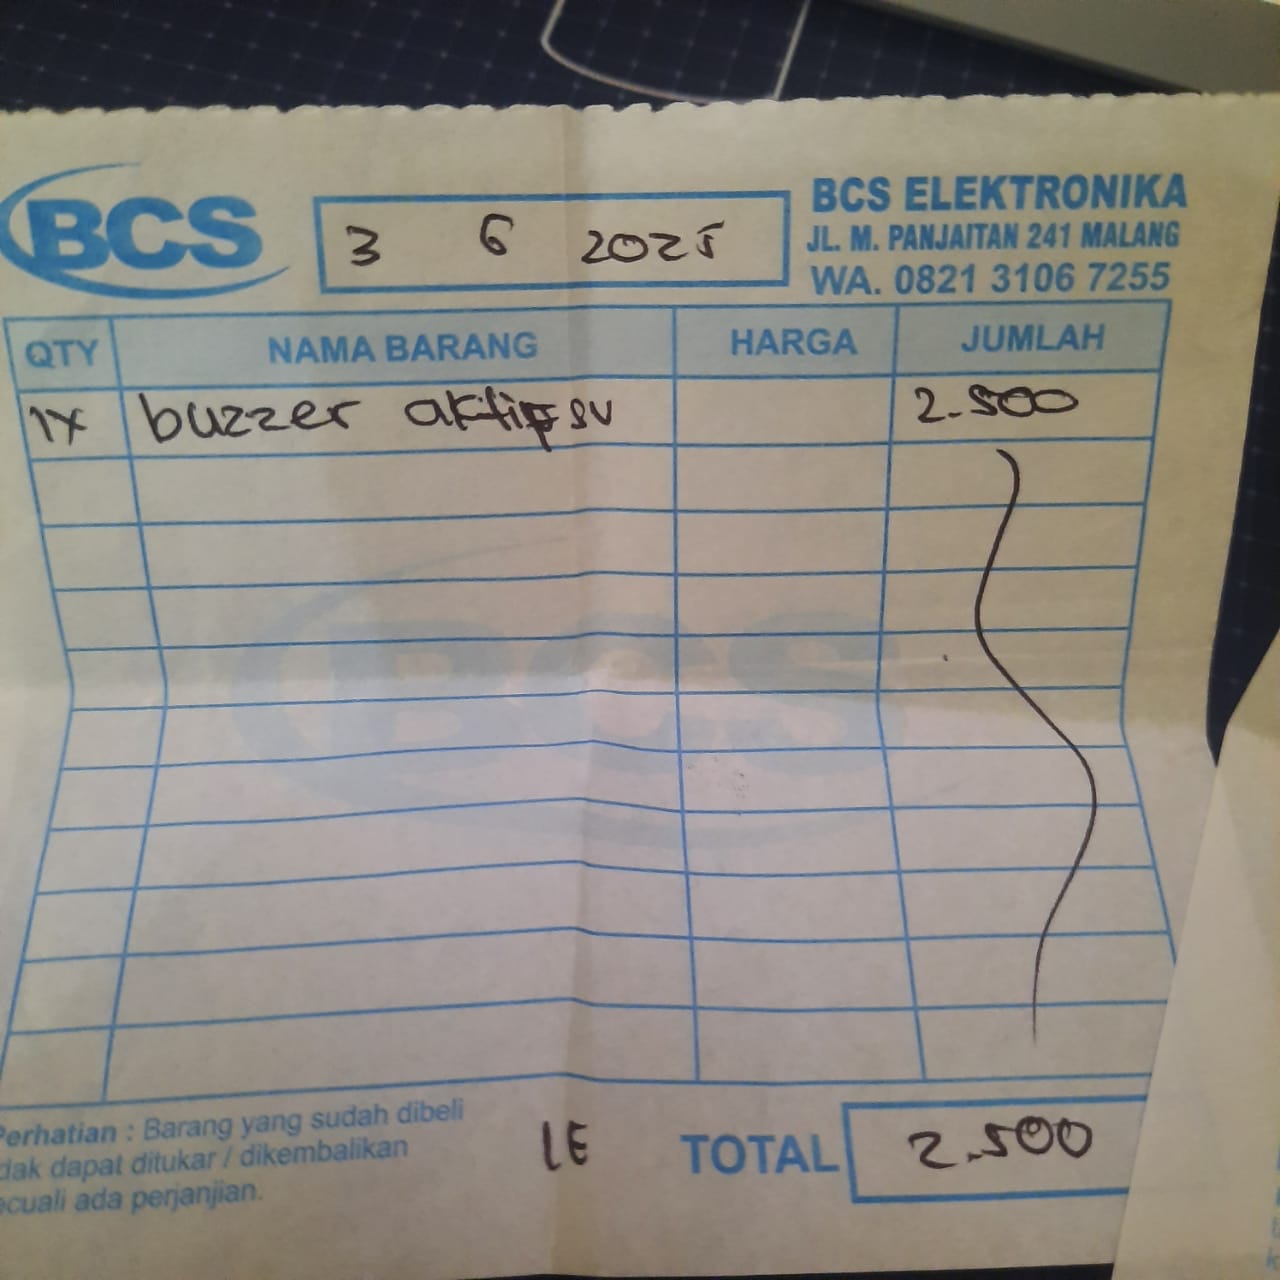 BCS
3 6 2025
BCS ELEKTRONIKA
JL. M. PANJAITAN 241 MALANG
WA. 0821 3106 7255
QTY NAMA BARANG HARGA JUMLAH
1x buzzer aktif 5V 2.500
BCS
Perhatian : Barang yang sudah dibeli
dak dapat ditukar / dikembalikan
ecuali ada perjanjian.
LE
TOTAL 2.500